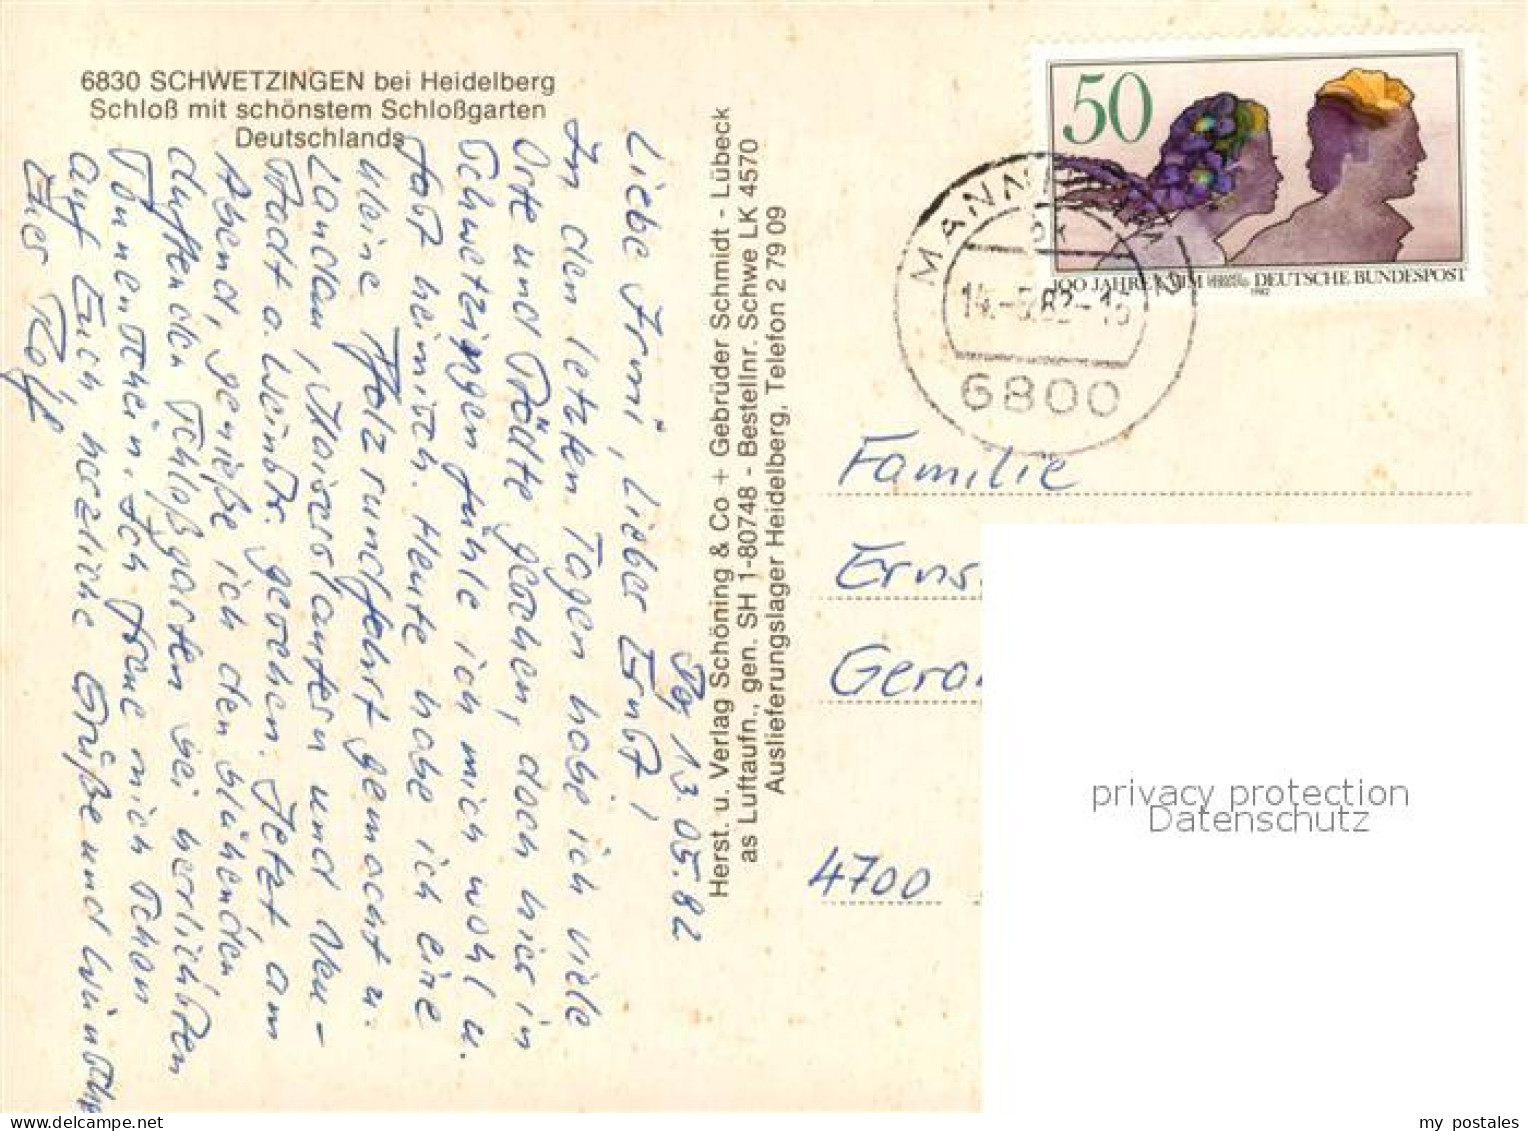 6830 SCHWETZINGEN bei Heidelberg
Schloß mit schönstem Schloßgarten
Deutschlands
50
100 JAHRE CVJM DEUTSCHE BUNDESPOST
1982
MANNHEIM
14.-5.82-15
6800
den 13.05.82
Liebe Irmi, Lieber Ernst!
In den letzten Tagen habe ich viele
Orte und Städte gesehen, doch hier in
Schwetzingen fühle ich mich wohl u.
fast heimisch. Heute habe ich eine
kleine Pfalzrundfahrt gemacht u.
Landau, Kaiserslautern und Neu-
stadt a. Weinstr. gesehen. Jetzt am
Abend, genieße ich den blühenden
duftenden Schloßgarten bei herrlichsten
Sonnenschein. Ich freue mich schon
auf Euch, herzliche Grüße und Wünsche
Euer Rolf
Herst. u. Verlag Schöning & Co + Gebrüder Schmidt - Lübeck
as Luftaufn., gen. SH 1-80748 - Bestellnr. Schwe LK 4570
Auslieferungslager Heidelberg, Telefon 2 79 09
Familie
Erns
Gera
4700
privacy protection
Datenschutz
my postales